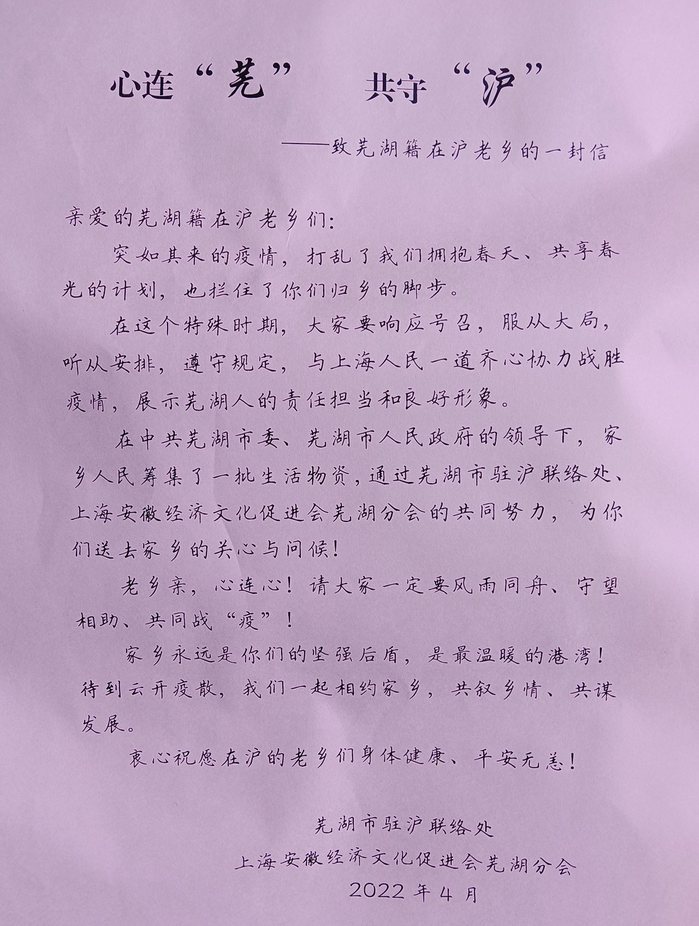 心连“芜” 共守“沪”
——致芜湖籍在沪老乡的一封信
亲爱的芜湖籍在沪老乡们：
突如其来的疫情，打乱了我们拥抱春天、共享春
光的计划，也拦住了你们归乡的脚步。
在这个特殊时期，大家要响应号召，服从大局，
听从安排，遵守规定，与上海人民一道齐心协力战胜
疫情，展示芜湖人的责任担当和良好形象。
在中共芜湖市委、芜湖市人民政府的领导下，家
乡人民筹集了一批生活物资，通过芜湖市驻沪联络处、
上海安徽经济文化促进会芜湖分会的共同努力，为你
们送去家乡的关心与问候！
老乡亲，心连心！请大家一定要风雨同舟、守望
相助、共同战“疫”！
家乡永远是你们的坚强后盾，是最温暖的港湾！
待到云开疫散，我们一起相约家乡，共叙乡情、共谋
发展。
衷心祝愿在沪的老乡们身体健康、平安无恙！
芜湖市驻沪联络处
上海安徽经济文化促进会芜湖分会
2022年4月